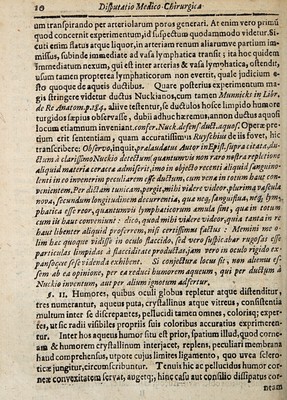 10 Disputatio Medico-Chirurgica
um transpirando per arteriolarum poros generari. At enim vero primum
quod concernit experimentum, id suspectum quodammodo videtur. Si-
cuti enim flatus atque liquor, in arteriam renum aliarumve partium im-
missus, subinde immediate ad vasa lymphatica transit; ita hoc quidem
immediatum nexum, qui est inter arterias & vasa lymphatica, ostendit,
usum tamen propterea lymphaticorum non evertit, quale judicium e-
sto quoque de aqueis ductibus. Quare posterius experimentum ma-
gis stringere videtur ductus Nuckianos, cum tamen Munnicks in Libr.
de Re Anatom. p. 184. aliive testentur, se ductulos hosce limpido humore
turgidos sæpius observasse, dubii adhuc hæremus, annon ductus aquosi
locum etiamnum inveniant. confer. Nuck. defens. duct. aquos. Operæ pre-
tium erit sententiam, quam accuratissimus Ruyschius de iis fovet, hic
transcribere: Observo, inquit, prælaudatus Autor in Epist. supra citata, du-
ctum à clarissimo Nuckio detectum quantumvis non raro nostra repletione
aliquid materia ceracea admiserit, imo in objecto recenti aliquid sangvino-
lenti in eo invenerim peculiarem esse ductum, cum natura in totum haut con-
venientem, Per dictam tunicam, pergit, mihi videor, plurima vascula
nova, secundum longitudinem decurrentia, qua neq; sangviflua, neq; lym-
phatica esse reor, quantumvis lymphaticorum amula sint, quia in totum
cum iis haut conveniunt: dico, quod mihi videre videor, quia tanta in re
haut libenter aliquid proferrem, nisi certissimus factus: Memini me o-
lim hac quoque vidisse in oculo flaccido, sed vero suspicabar rugosas esse
particulas limpidas à flacciditate productas, jam vero in oculo rigido ex-
pansoque sese videnda exhibent. Si conjectura locus sit, non alienus es-
sem ab ea opinione, per ea reduci humorem aqueum, qui per ductum à
Nuckio inventum, aut per alium ignotum adfertur.
§. 11. Humores, quibus oculi globus repletur atque distenditur,
tres numerantur, aqueus puta, crystallinus atque vitreus, consistentia
multum inter se discrepantes, pellucidi tamen omnes, colorisq; exper-
tes, ut sic radii visibiles propriis suis coloribus accuratius exprimeren-
tur. Inter hos aqueus humor situ est prior, spatium illud, quod corne-
am & humorem crystallinum interjacet, replens, peculiari membrana
haud comprehensus, utpote cujus limites ligamento, quo uvea sclero-
ticæ jungitur, circumscribuntur. Tenuis hic ac pellucidus humor cor-
neæ convexitatem servat, augetq; hinc casu aut consilio dissipatus cor-
neam